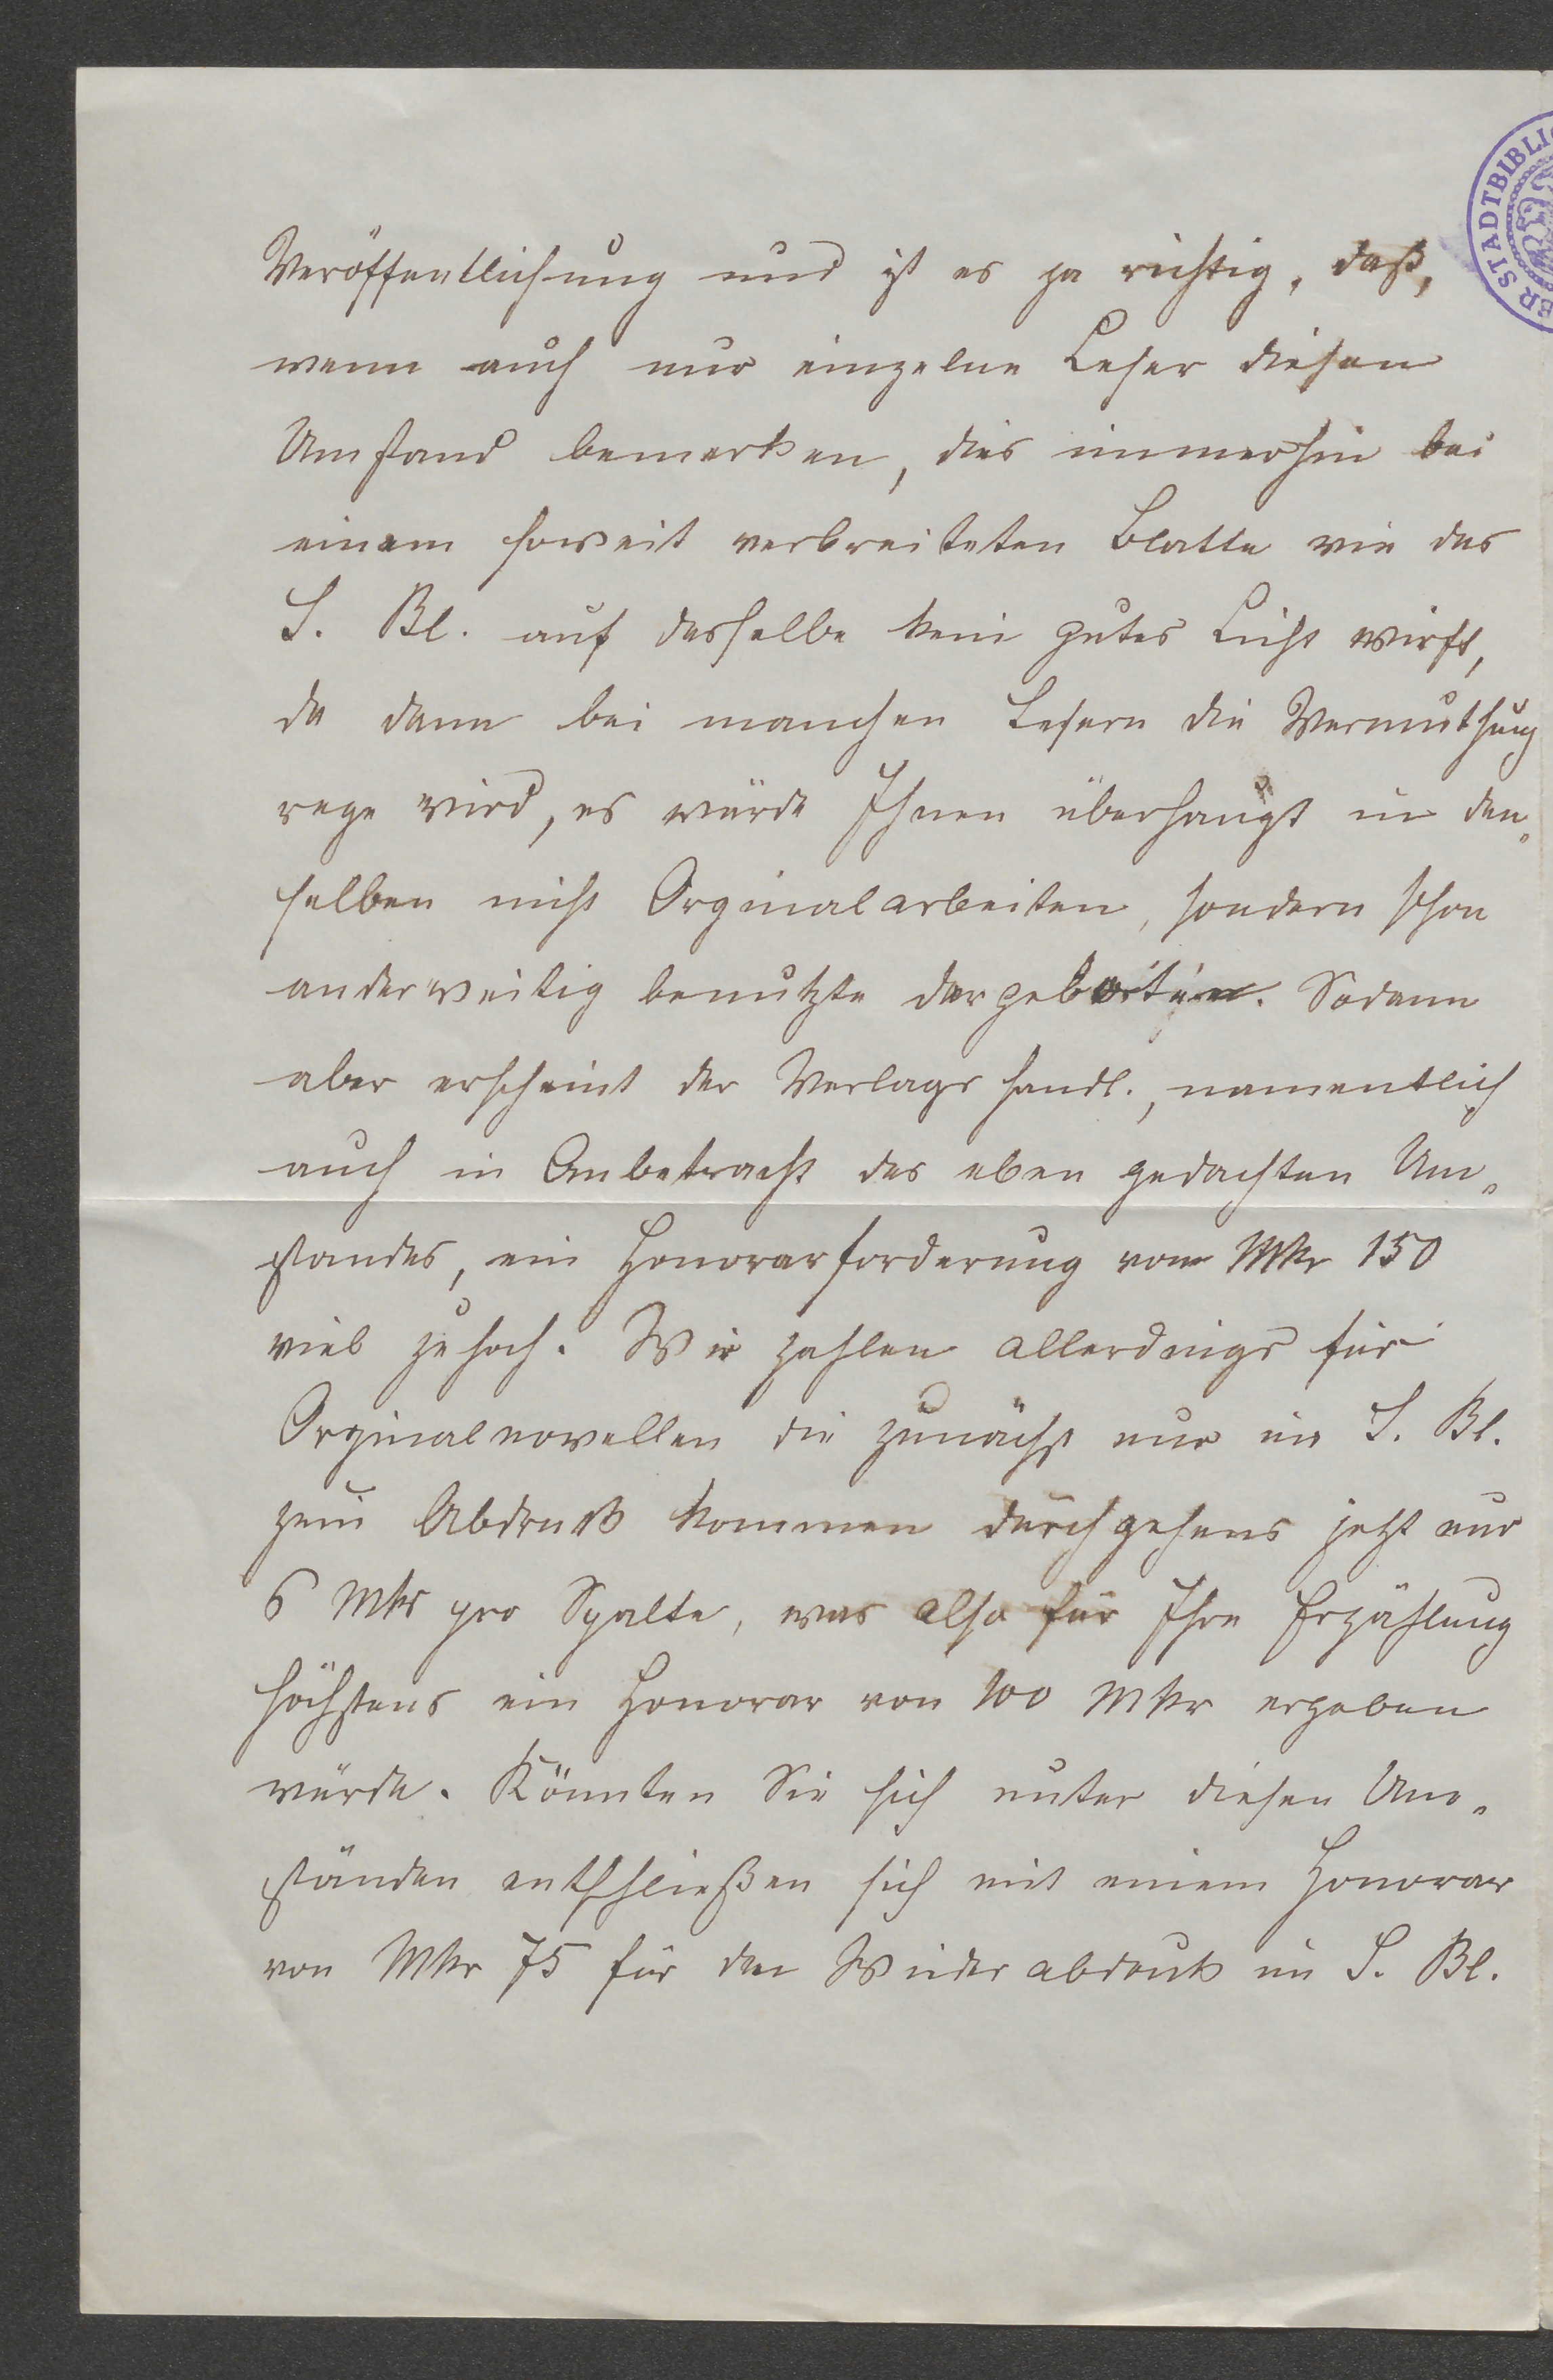 Veröffentlichung und ist es ja richtig, daß,
wenn auch nur einzelne Leser diesen
Umstand bemerken, dies immerhin bei
einem soweit verbreiteten Blatte wie das
S. Bl. auf dasselbe kein gutes Licht wirft,
da dann bei manchen Lesern die Vermuthung
rege wird, es würde Ihnen überhaupt in dem„
selben nicht Orginalarbeiten, sondern schon
anderweitig benutzte dargeboten. Sodann
aber erscheint der Verlagshandl., namentlich
auch in Anbetracht des eben gedachten Um„
standes, ein Honorarforderung von Mkr 150
viel zu hoch. Wir zahlen allerdings für
Orginalnovellen die zunächst nur im S. Bl.
zum Abdruck kommen durchgehens jetzt nur
6 Mkr pro Spalte, was also für Ihre Erzählung
höchstens ein Honorar von 100 Mkr ergeben
würde. Könnten Sie sich unter diesen Um„
ständen entschließen sich mit einem Honorar
von Mkr 75 für den Wiederabdruck im S. Bl.
ER STADTBIBLIO